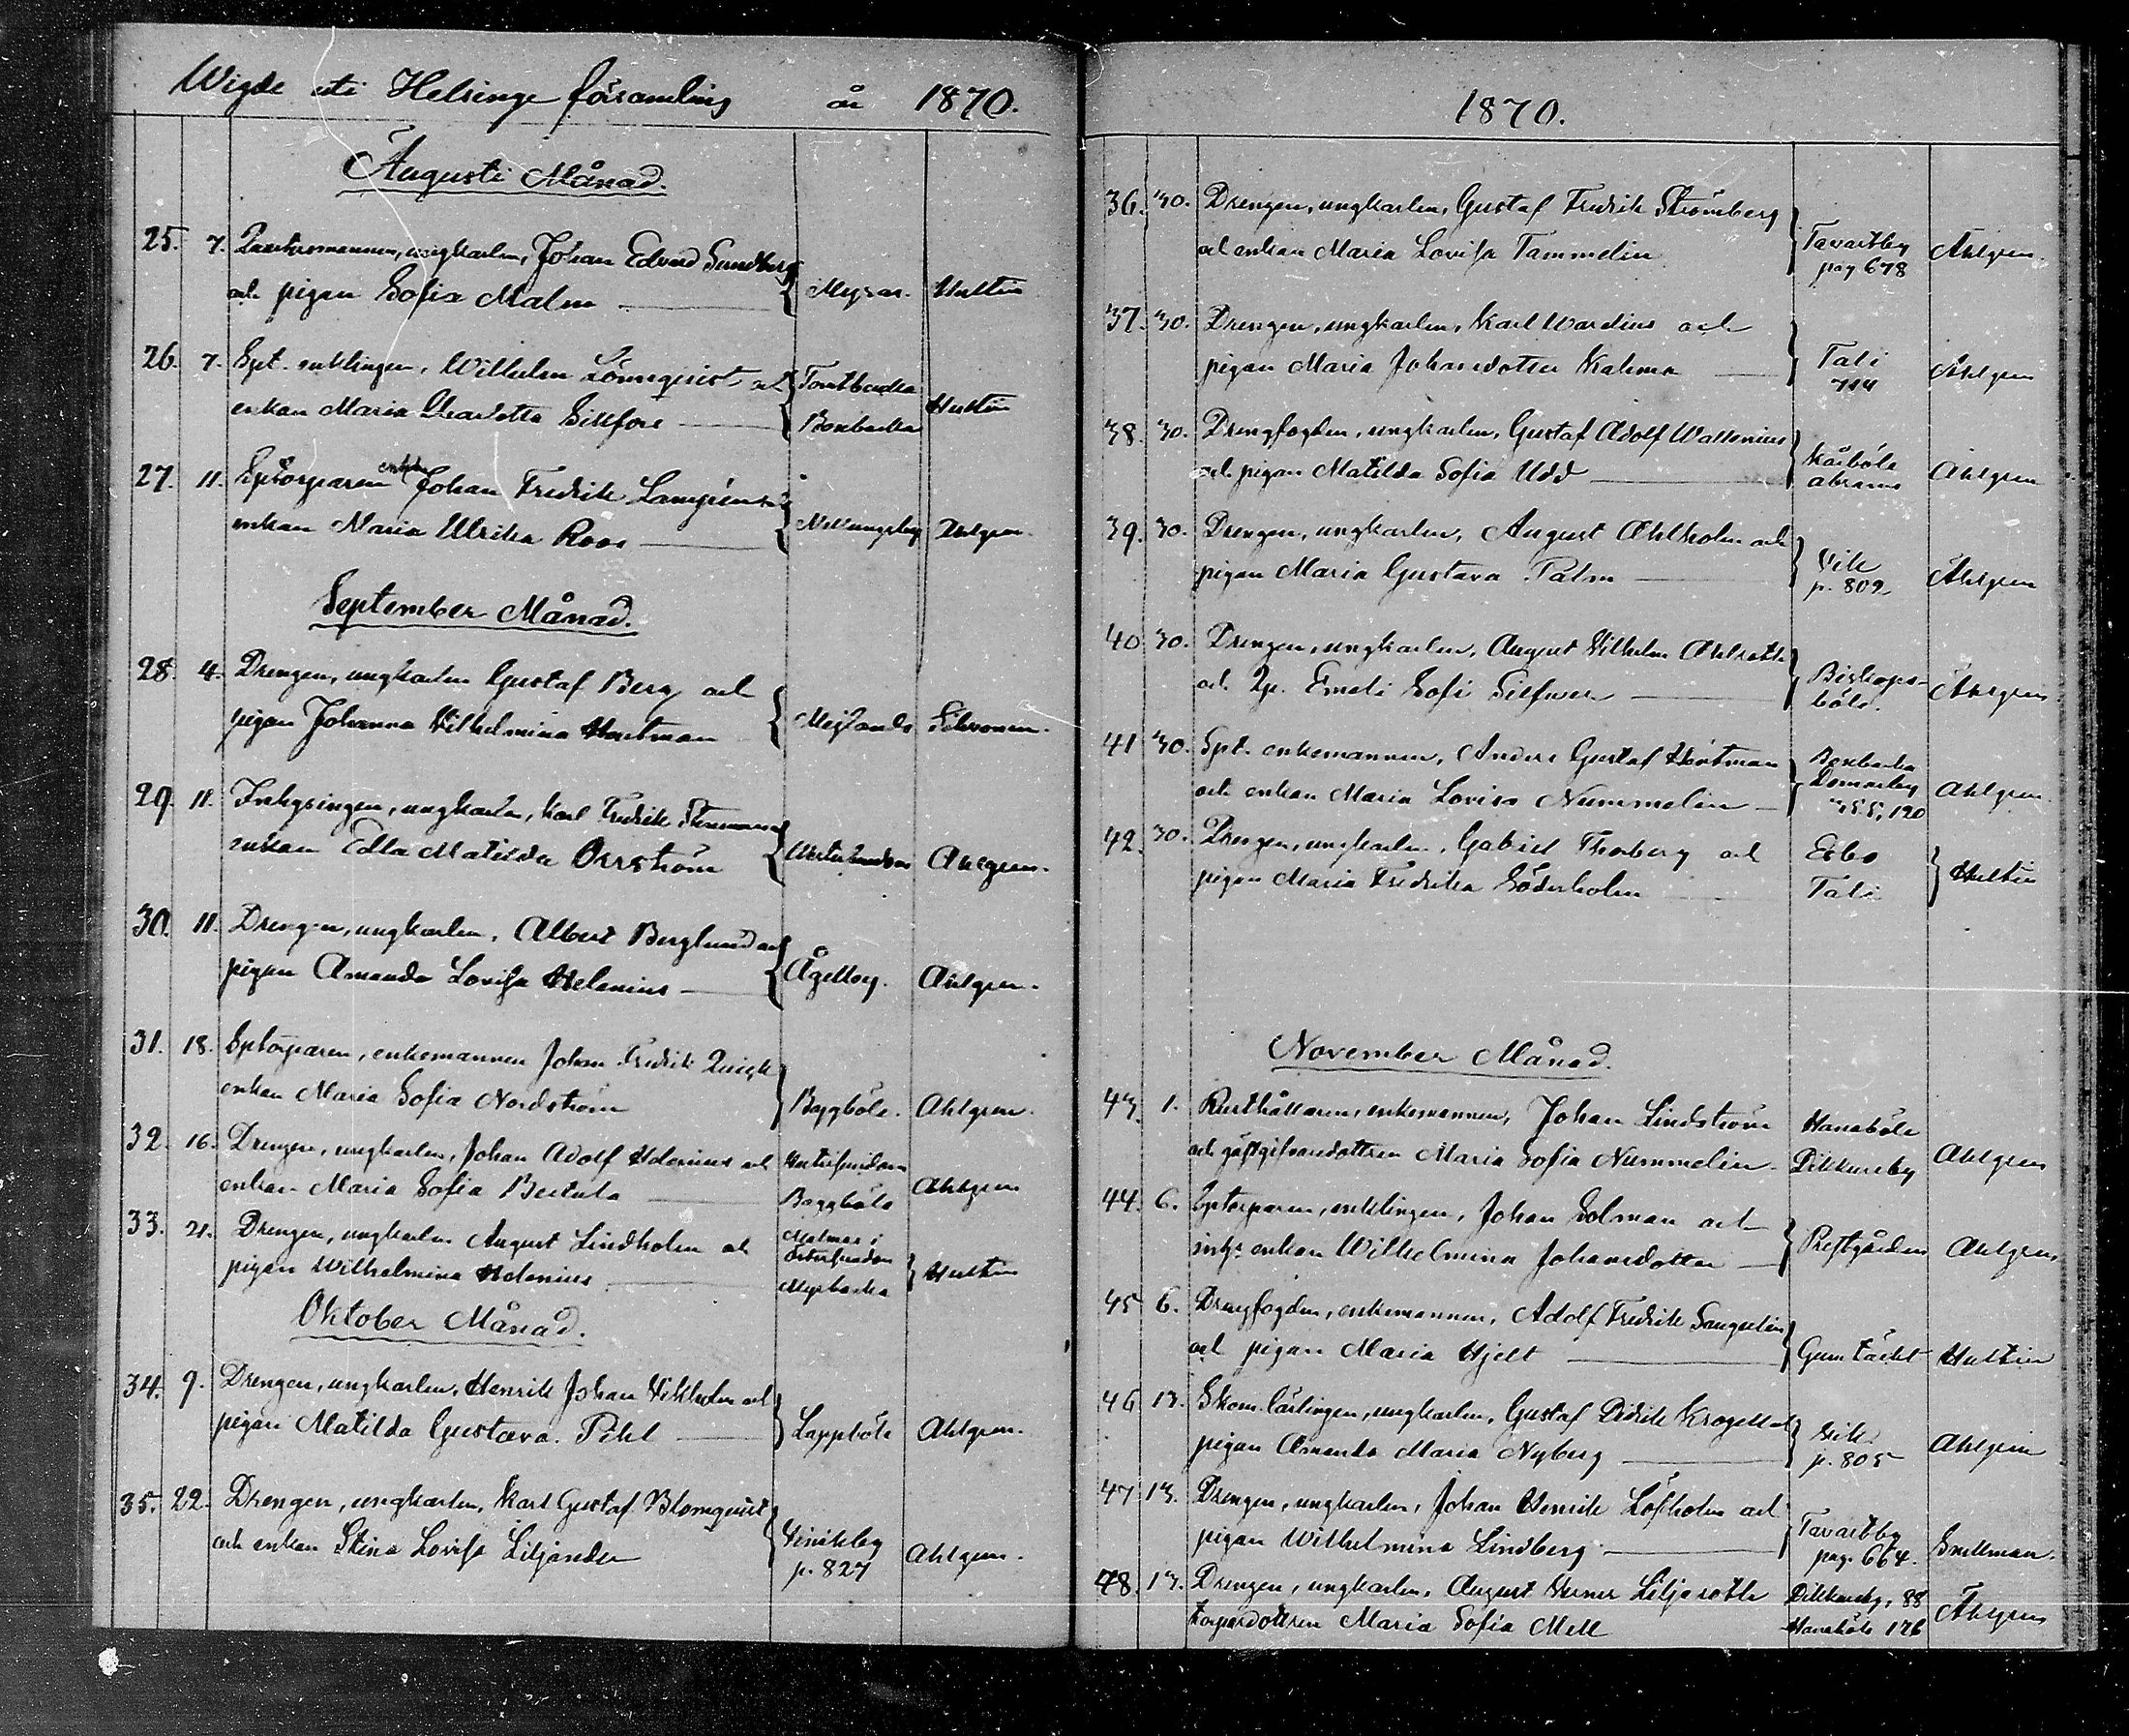 Wigde uti Helsinge församling år 1870.
Augusti Månad.
25. 7. ungkarlen, Johan Edvard Sundberg
och pigan Sofia Malm Hultin
26. 7. Spt. enklingen, Wilhelm Lönnqvist och Tomtbacka
enkan Maria Charlotta Sillfors Boxbacka Hultin
27. 11. Sptorparen enkl. Johan Fredrik Lampén och
enkan Maria Ulrika Roos Nellungsby Ahlgren.
September Månad.
28. 4. Drengen, ungkarlen Gustaf Berg och
pigan Johanna Vilhelmina Hartman Mejlands
29. 11. Inhysingen, ungkarlen, Karl Fredrik
enkan Edla Matilda Orrström Ahlgren.
30. 11. Drengen, ungkarlen, Albert Berglund och
pigan Amanda Lovisa Helenius Åggelby. Ahlgren.
31. 18. Sptorparen, enkemannen Johan Fredrik Quick
enkan Maria Sofia Nordström Baggböle. Ahlgren.
32. 16. Drengen, ungkarlen, Johan Adolf Helenius och
enkan Maria Sofia Bertula Baggböle Ahlgren
33. 21. Drengen, ungkarlen August Lindholm och Malmas i
pigan Wilhelmina Helenius Hultin
Oktober Månad.
34. 9. Drengen, ungkarlen, Henrik Johan Vikholm och
pigan Matilda Gustava Pihl Lappböle Ahlgren.
35. 22. Drengen, ungkarlen, Karl Gustaf Blomqvist
och enkan Stina Lovisa Liljander Ahlgren.
p. 827
1870.
36. 30. Drengen, ungkarlen, Gustaf Fredrik Strömberg
och enkan Maria Lovisa Tammelin Tavastby Ahlgren.
pag 678
37. 30. Drengen, ungkarlen, Karl Wardius och
pigan Maria Johansdotter Kahma Tali Ahlgren
38. 30. Drengfogden, ungkarlen, Gustaf Adolf Wallenius
och pigan Matilda Sofia Udd Kårböle Ahlgren
39. 30. Drengen, ungkarlen, August Ahlholm och
pigan Maria Gustava Palm Vik Ahlgren
p. 809
40. 30. Drengen, ungkarlen, August Vilhelm Ahlroth
och Qp. Emeli Sofi Silfver Biskops-
böle. Ahlgren
41 30. Spt. enkemannen, Anders Gustaf Hartman Boxbacka
och enkan Maria Lovisa Nummelin Domarby Ahlgren
355, 120
42. 30. Drengen, ungkarlen, Gabriel Thorberg och Esbo
pigan Maria Fredrika Söderholm Tali Hultin
November Månad.
43. 1. Rusthållaren, enkemannen, Johan Lindström Hanaböle
och gästgifvaredottren Maria Sofia Nummelin Dickursby Ahlgren
44. 6. Sptorparen, enklingen, Johan Solman och
inhs enkan Wilhelmina Johansdotter Prestgården Ahlgren
45 6. Drengfogden, enkemannen, Adolf Fredrik Sanqvelin
och pigan Maria Hjelt Gumtäckt Hultin
46 13. Skom. lärlingen, ungkarlen, Gustaf Didrik Krogell och
pigan Amanda Maria Nyberg Vik Ahlgren
p. 805
47 13. Drengen, ungkarlen, Johan Henrik Löfholm och
pigan Wilhelmina Lindberg Tavastby Snellman.
pag. 664.
48. 13. Drengen, ungkarlen, August Verner Liljeroth Dickursby, 88
torpardottren Maria Sofia Mell Hanaböle 176 Ahlgren